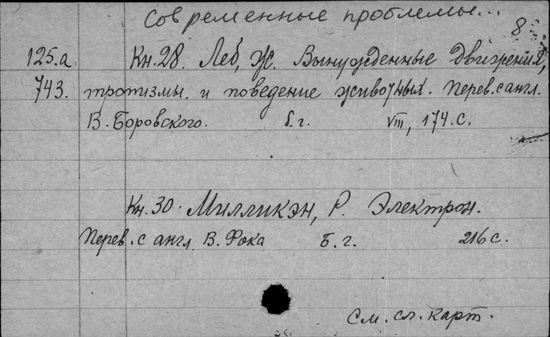 Современные проблемы...
8
125.а Кн.28. Леб, Ж. Вынужденные движения,
743. тропизмы и поведение животных. Перев. с англ.
В. Боровского. б.г. VIII, 174 с.
Кн. 30. Милликэн, Р. Электрон.
Перев. с англ. В. Фока Б. г. 216 с.
См. сл. карт.